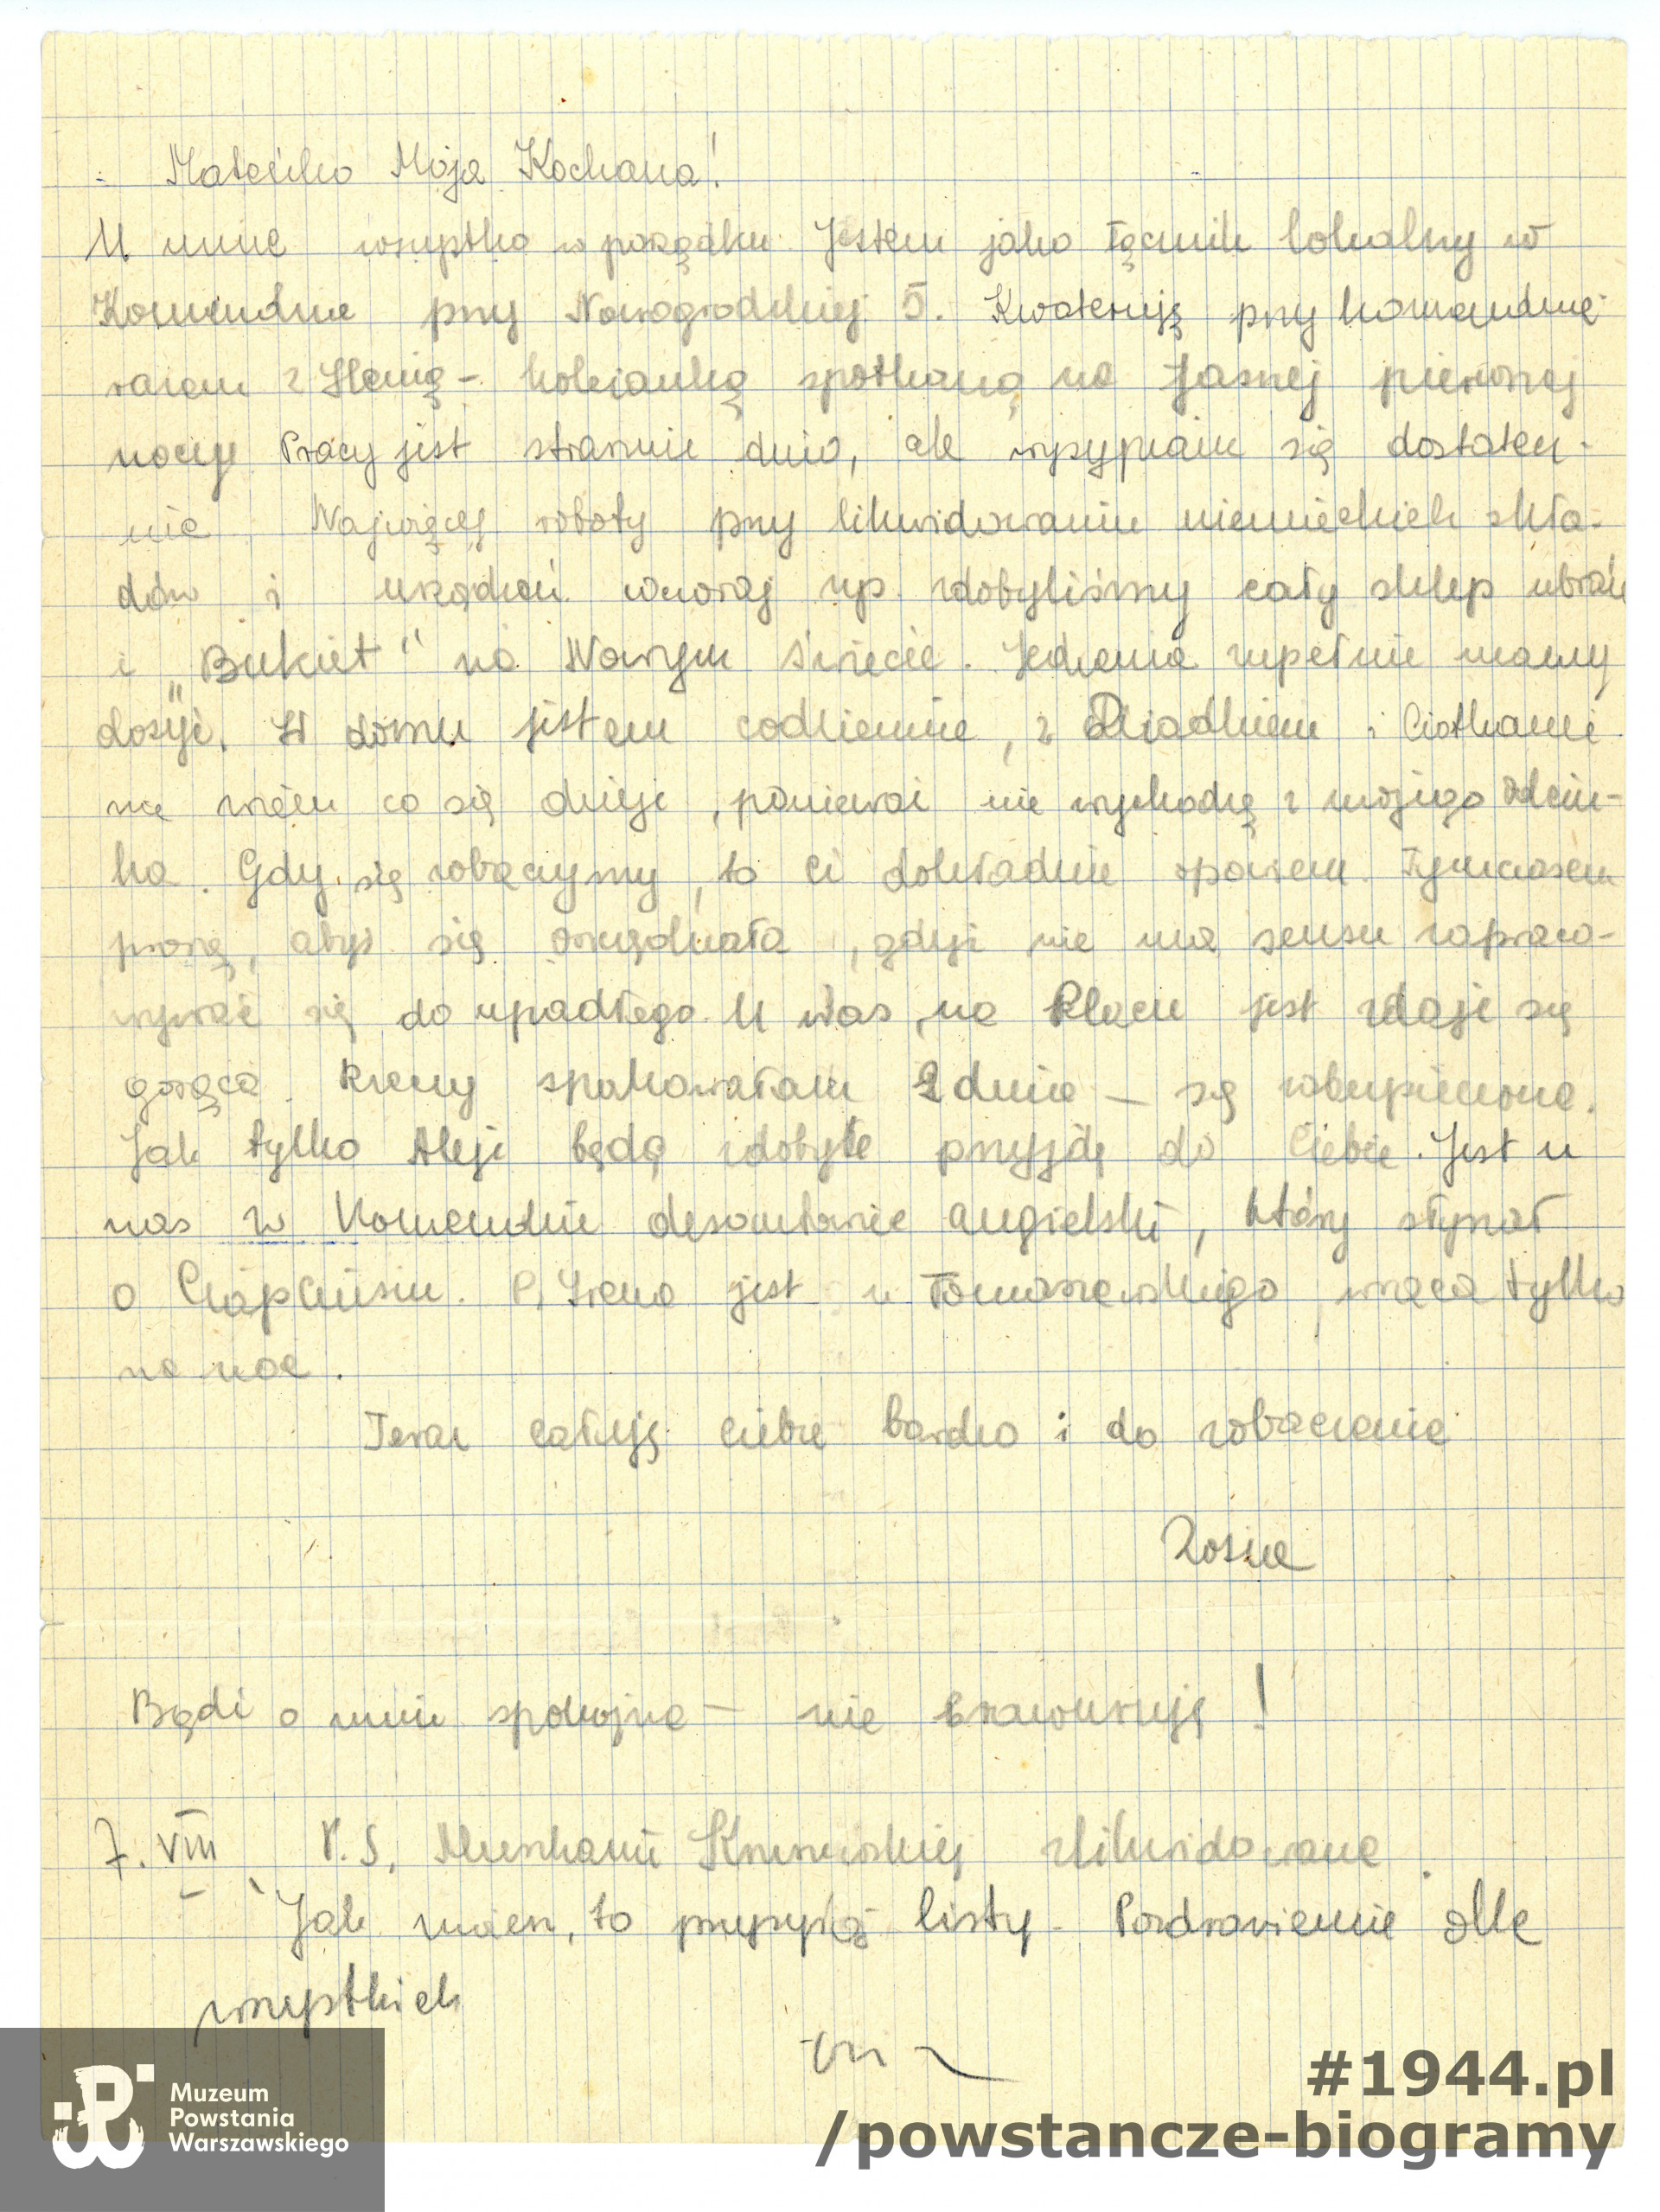 Mateńko Moja Kochana!
U mnie wszystko w porządku. Jestem jako łącznik lokalny w
Komendzie przy Nowogrodzkiej 5. Kwateruję przy komendzie
razem z Henią – koleżanką spotkaną na Jasnej pierwszej
nocy. Pracy jest strasznie dużo, ale wysypiam się dostatecz-
nie. Najwięcej roboty przy likwidowaniu niemieckich skła-
dów i urządzeń. wczoraj np. zdobyliśmy cały sklep ubrań
i „Bukiet" na Nowym Świecie. Jedzenia zupełnie mamy
dosyć. W domu jestem codziennie, z Dziadkiem i Ciotkami
nie wiem co się dzieje, ponieważ nie wychodzę z mojego odcin-
ka. Gdy się zobaczymy, to Ci dokładnie opowiem. Tymczasem
proszę, abyś się oszczędzała, gdyż nie ma sensu zapraco-
wywać się do upadłego. U Was na Placu jest zdaje się
gorąco. Rzeczy spakowałam 2 dnia – są zabezpieczone.
Jak tylko Aleje będą zdobyte przyjdę do Ciebie. Jest u
nas w Komendzie desantowiec angielski, który słyszał
o Czapkusiu. P. Irena jest u Tomaszewskiego, wraca tylko
na noc.
Teraz całuję Ciebie bardzo i do zobaczenia
Zosia
Bądź o mnie spokojna – nie brawuruję!
7. VIII P.S. Mieszkanie zlikwidowane.
Jak możesz, to przysyłaj listy. Pozdrowienie dla
wszystkich
Muzeum
Powstania
Warszawskiego
#1944.pl
/powstancze-biogramy